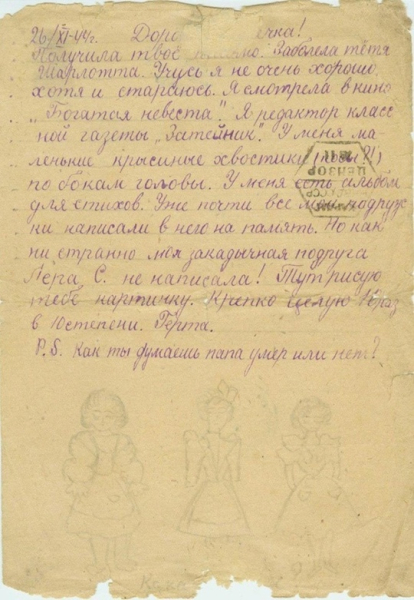 26/XI-44г. Доро чка!
Получила твоё Заболела тётя
Шарлотта. Учусь я не очень хорошо,
хотя и стараюсь. Я смотрела в кино
„Богатая невеста". Я редактор класс
ной газеты „Затейник". У меня ма
ленькие крысиные хвостики
по бокам головы. У меня есть альбом
для стихов. Уже почти все мои подруж
ки написали в него на память. Но как
ни странно моя закадычная подруга
Лера С. не написала! Тут рисую
тебе картинку. Крепко целую 10 раз
в 10 степени. Герта.
P.S. Как ты думаешь папа умер или нет?
ЦЕНЗОР